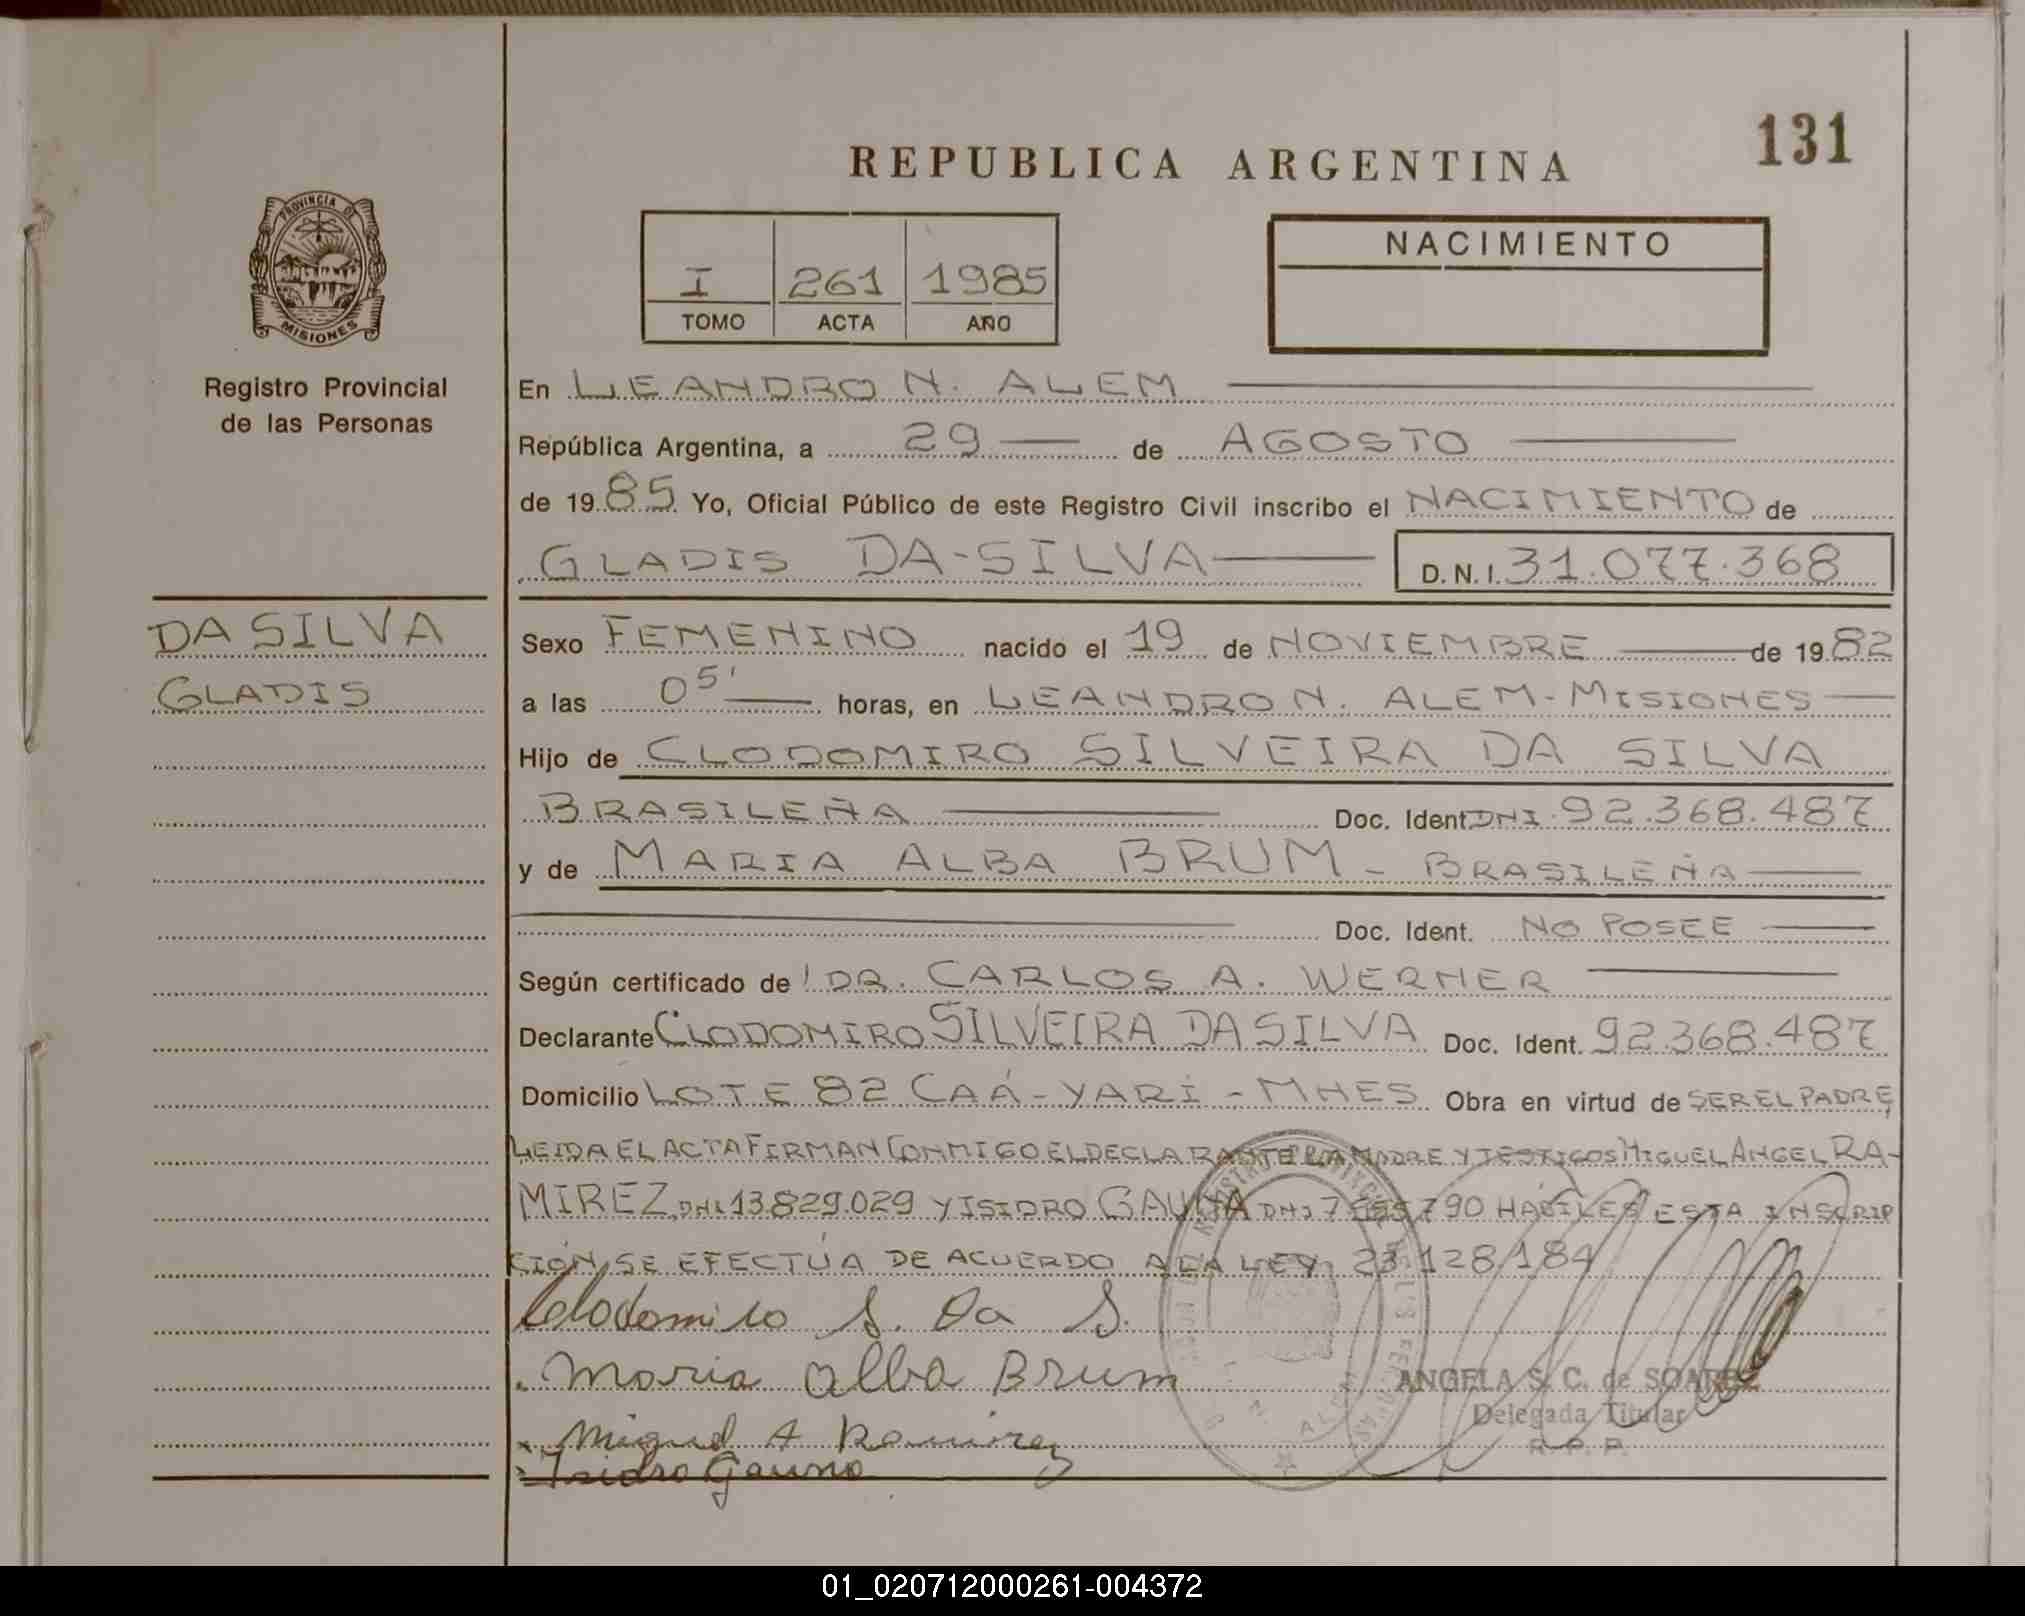 131
REPUBLICA ARGENTINA
PROVINCIA DE
MISIONES
Registro Provincial
de las Personas
I 261 1985
TOMO ACTA AÑO
NACIMIENTO
En LEANDRO N. ALEM
República Argentina, a 29 de AGOSTO
de 1985 Yo, Oficial Público de este Registro Civil inscribo el NACIMIENTO de
GLADIS DA-SILVA D.N.I. 31.077.368
DA SILVA
GLADIS
Sexo FEMENINO nacido el 19 de NOVIEMBRE de 1982
a las 05' horas, en LEANDRO N. ALEM-MISIONES
Hijo de CLODOMIRO SILVEIRA DA SILVA
BRASILEÑA Doc. Ident. DNI. 92.368.487
y de MARIA ALBA BRUM - BRASILEÑA
Doc. Ident. NO POSEE
Según certificado de DR. CARLOS A. WERNER
Declarante CLODOMIRO SILVEIRA DA SILVA Doc. Ident. 92.368.487
Domicilio LOTE 82 CAÁ-YARÍ - MNES Obra en virtud de SER EL PADRE,
LEIDA EL ACTA FIRMAN CONMIGO EL DECLARANTE LA MADRE Y TESTIGOS MIGUEL ANGEL RA-
MIREZ, DNI 13829.029 Y ISIDRO GAUNA DNI 790 HÁBILES ESTA INSCRIP
CIÓN SE EFECTÚA DE ACUERDO A LA LEY 23128/84
Clodomiro S. Da S.
Maria Alba Brum
Miguel A Ramirez
Isidro Gauna
ANGELA S. C. de SOAREZ
Delegada Titular
R. P. P.
01_020712000261-004372